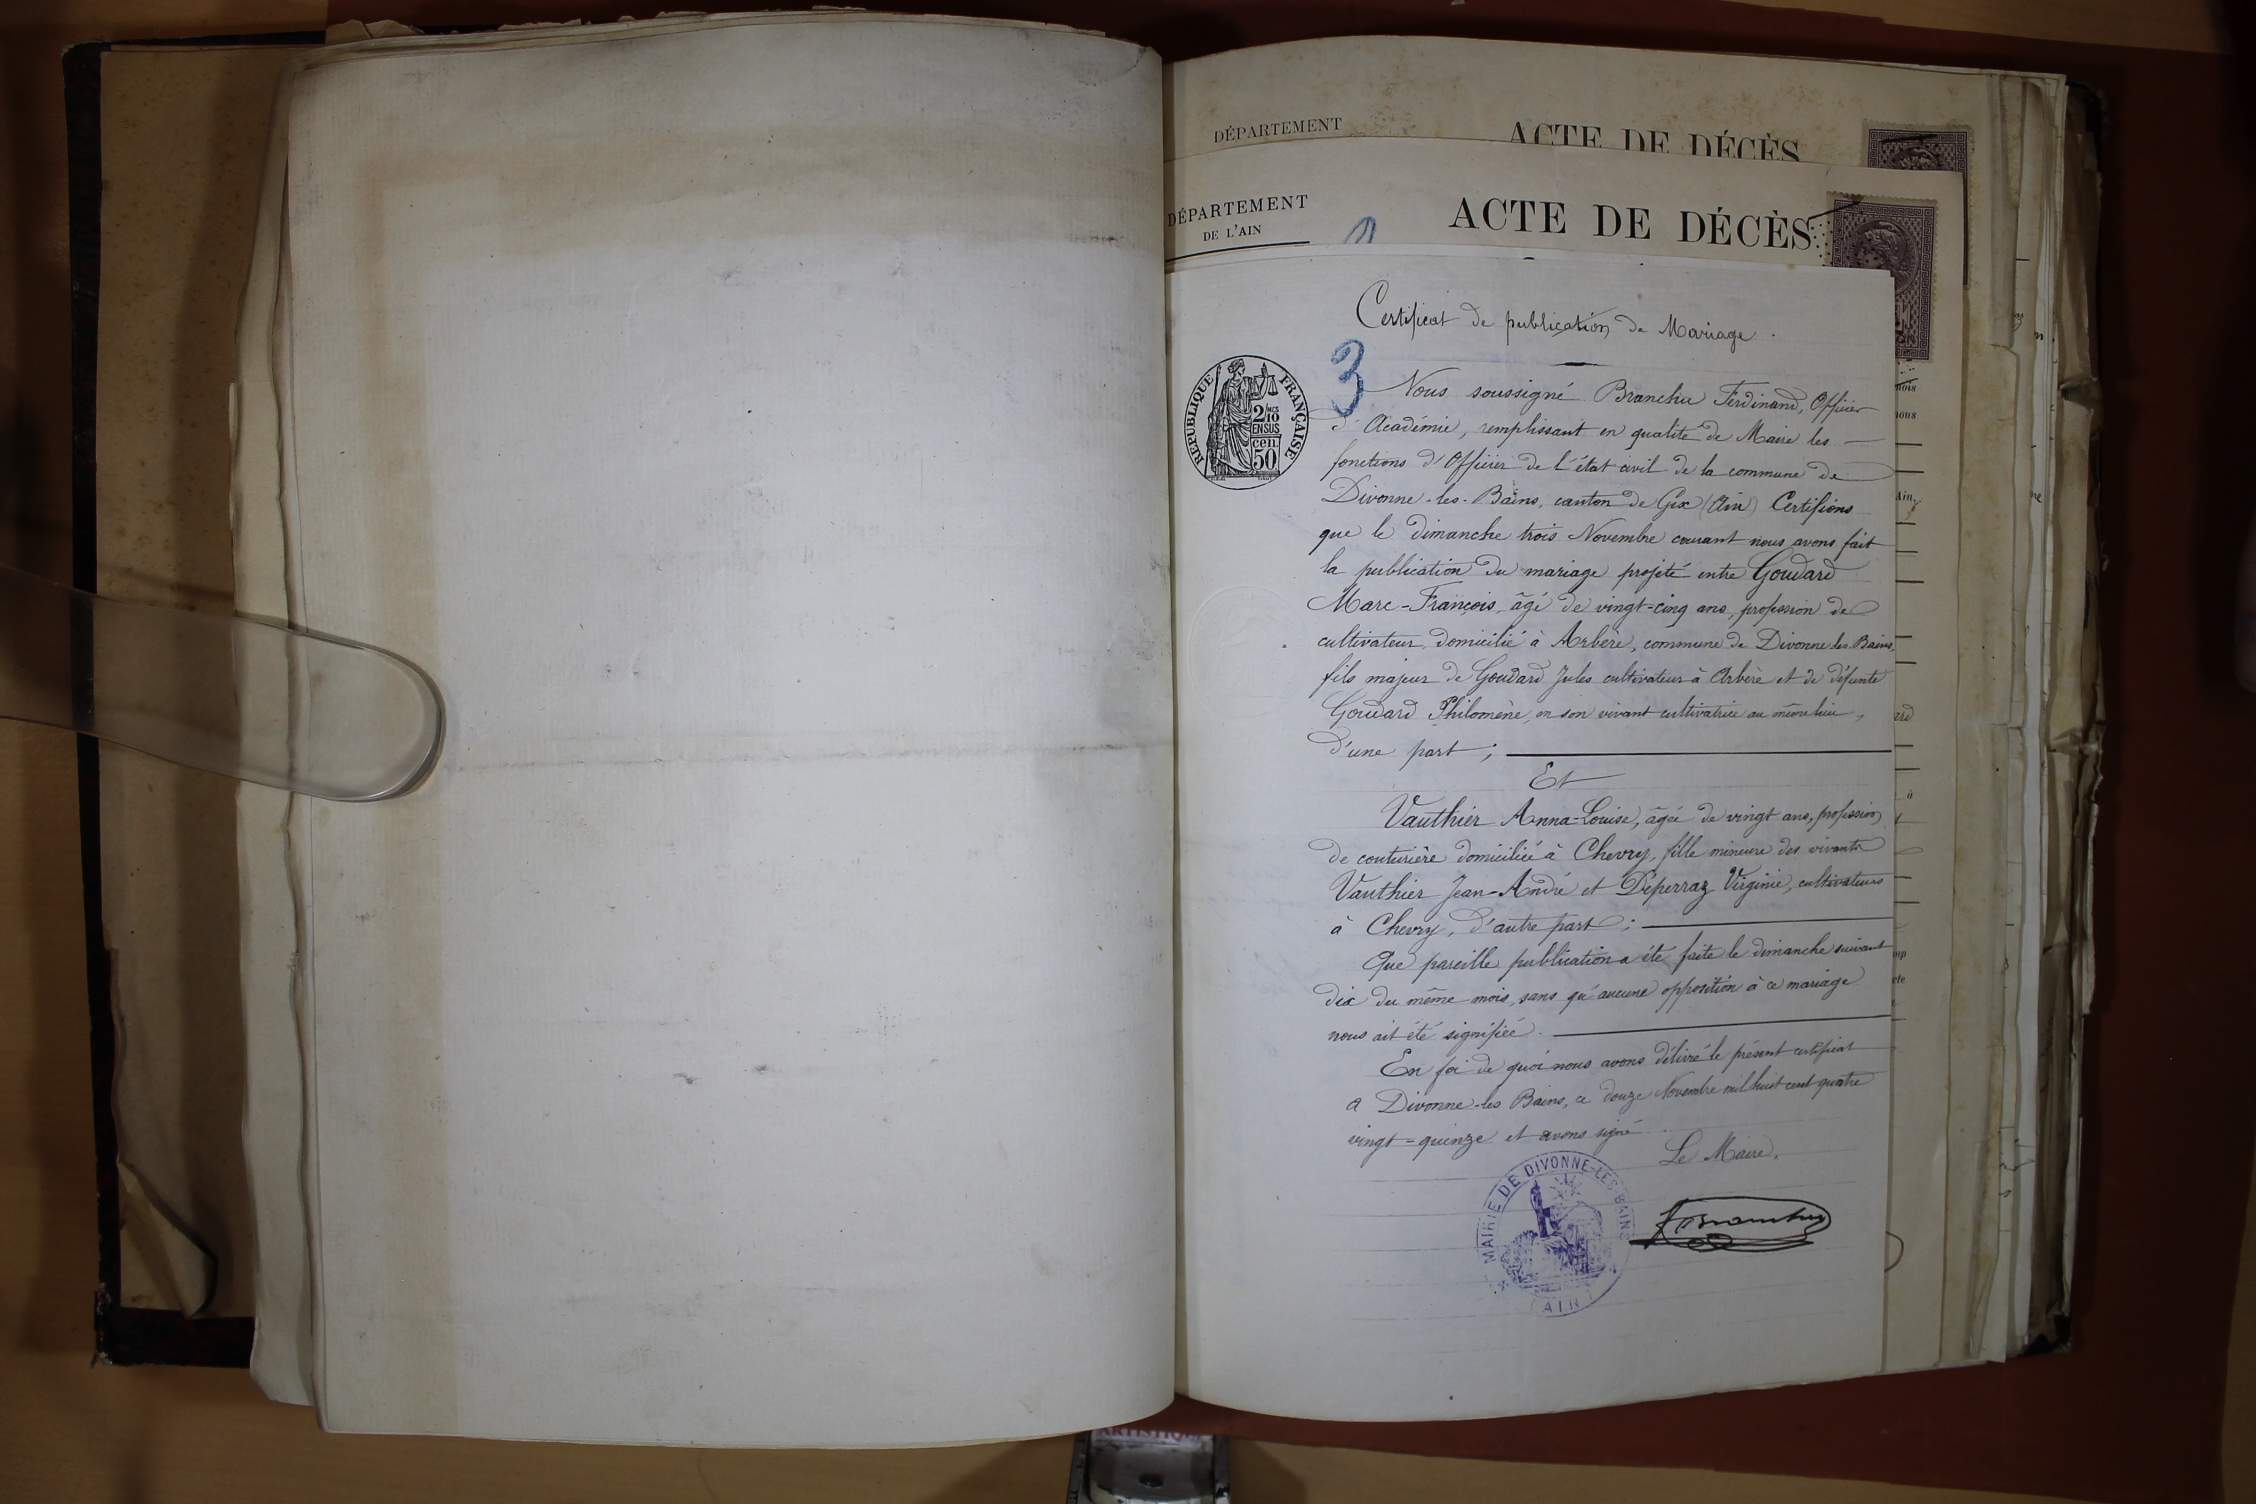 DÉPARTEMENT
ACTE DE DÉCÈS
DÉPARTEMENT
DE L'AIN
ACTE DE DÉCÈS
Certificat de publication de Mariage.
3
RÉPUBLIQUE FRANÇAISE
2/10 EN SUS
cen. 50
Nous soussigné Branchu Ferdinand, Officier
d'Académie, remplissant en qualité de Maire les
fonctions d'Officier de l'état civil de la commune de
Divonne-les-Bains, canton de Gex (Ain) Certifions
que le dimanche trois Novembre courant nous avons fait
la publication du mariage projeté entre Goudard
Marc-François, âgé de vingt-cinq ans, profession de
cultivateur domicilié à Arbère, commune de Divonne-les-Bains,
fils majeur de Goudard Jules cultivateur à Arbère et de défunte
Goudard Philomène, en son vivant cultivatrice au même lieu,
d'une part ;
Et
Vauthier Anna-Louise, âgée de vingt ans, profession
de couturière domiciliée à Chevry, fille mineure des vivants
Vauthier Jean-André et Déperraz Virginie, cultivateurs
à Chevry, d'autre part ;
Que pareille publication a été faite le dimanche suivant
dix du même mois, sans qu'aucune opposition à ce mariage
nous ait été signifiée.
En foi de quoi nous avons délivré le présent certificat
a Divonne-les Bains, ce douze Novembre mil huit cent quatre
vingt=quinze et avons signé.
Le Maire,
MAIRIE DE DIVONNE-LES-BAINS
AIN
FBranchu